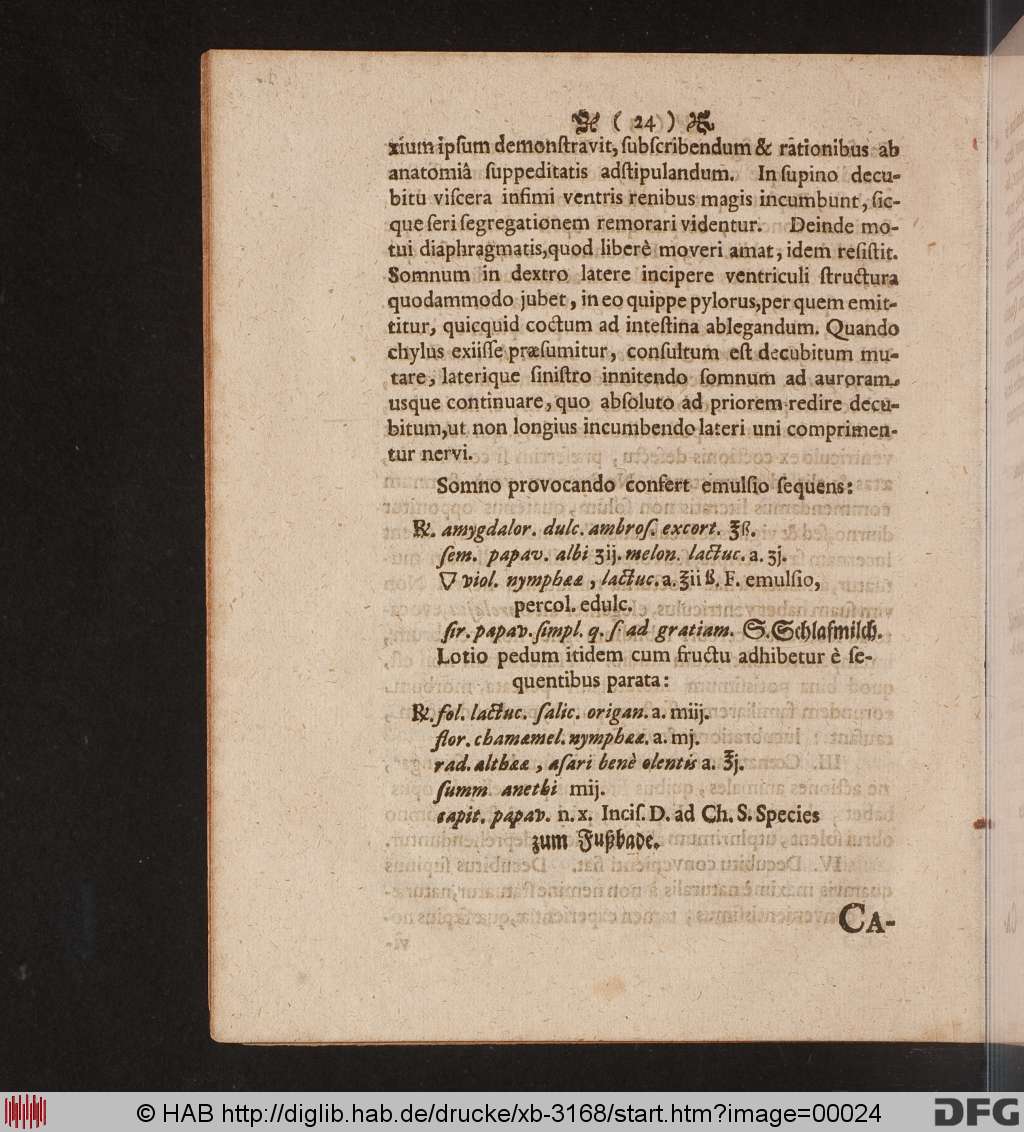 ( 24 )
xium ipſum demonſtravit, ſubſcribendum & rationibus ab
anatomiâ ſuppeditatis adſtipulandum. In ſupino decu-
bitu viſcera infimi ventris renibus magis incumbunt, ſic-
que ſeri ſegregationem remorari videntur. Deinde mo-
tui diaphragmatis, quod liberè moveri amat, idem reſiſtit.
Somnum in dextro latere incipere ventriculi ſtructura
quodammodo jubet, in eo quippe pylorus, per quem emit-
titur, quicquid coctum ad inteſtina ablegandum. Quando
chylus exiiſſe præſumitur, conſultum eſt decubitum mu-
tare, laterique ſiniſtro innitendo ſomnum ad auroram
usque continuare, quo abſoluto ad priorem redire decu-
bitum, ut non longius incumbendo lateri uni comprimen-
tur nervi.
Somno provocando confert emulſio ſequens:
℞. amygdalor. dulc. ambroſ. excort. ℥ß.
ſem. papav. albi ʒij. melon. lactuc. a. ʒj.
▽ viol. nymphææ, lactuc. a. ℥ii ß. F. emulſio,
percol. edulc.
ſir. papav. ſimpl. q. ſ. ad gratiam. S. Schlafmilch.
Lotio pedum itidem cum fructu adhibetur è ſe-
quentibus parata:
℞. fol. lactuc. ſalic. origan. a. miij.
flor. chamæmel. nymphææ. a. mj.
rad. althææ, aſari benè olentis a. ℥j.
ſumm. anethi mij.
capit. papav. n. x. Inciſ. D. ad Ch. S. Species
zum Fußbade.
CA-
© HAB http://diglib.hab.de/drucke/xb-3168/start.htm?image=00024
DFG